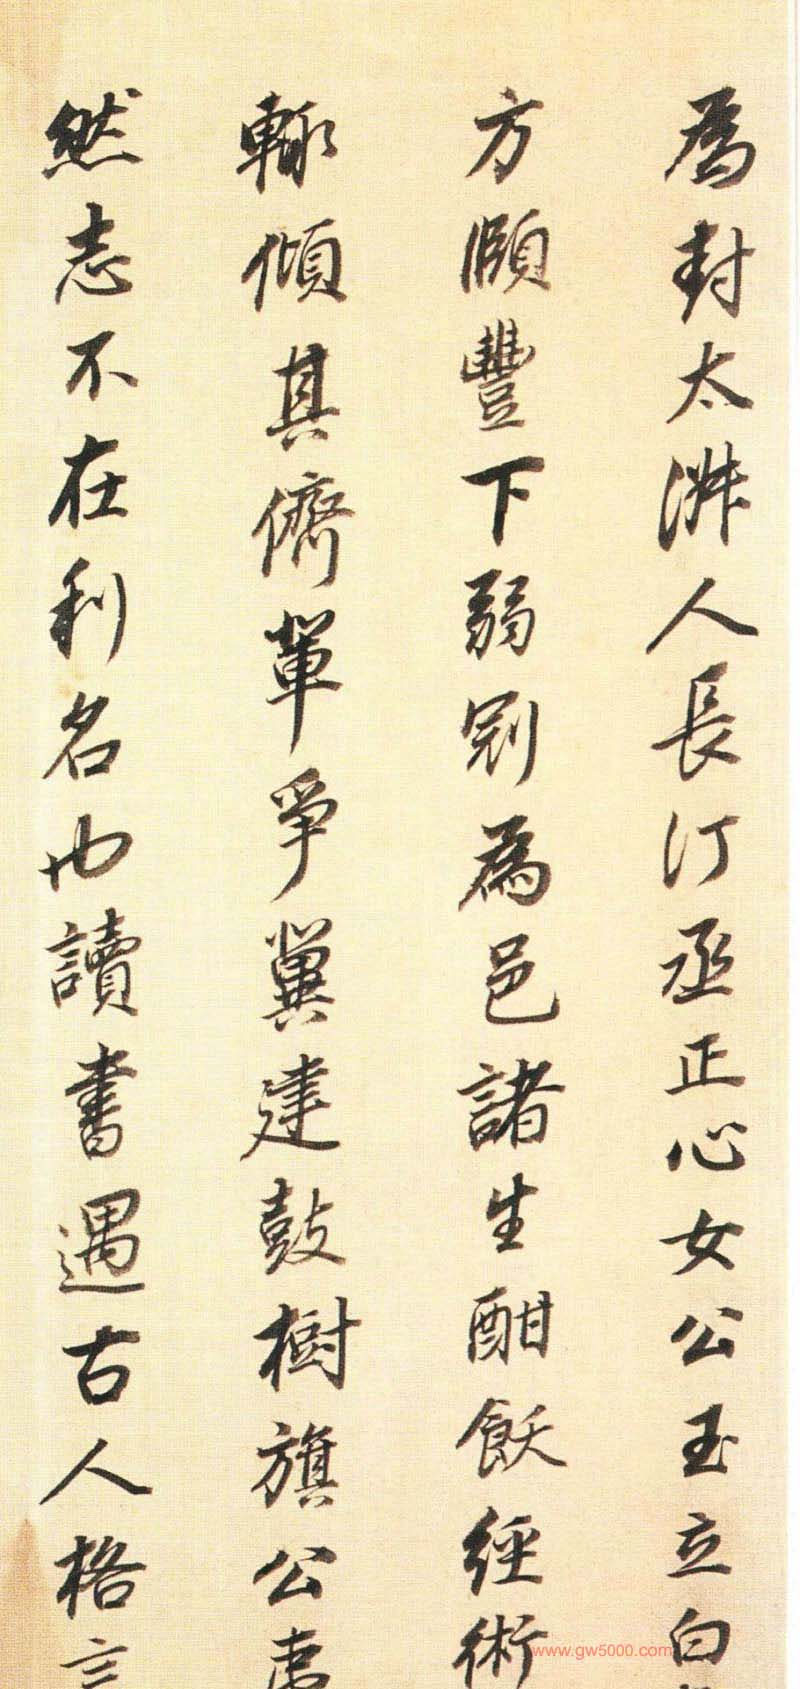 為封太淑人長汀丞正心女公玉立白
方頤豐下弱冠為邑諸生酣飫經術
輒傾其儕輩爭冀建鼓樹旗公夷
然志不在利名也讀書遇古人格言
www.gw5000.com